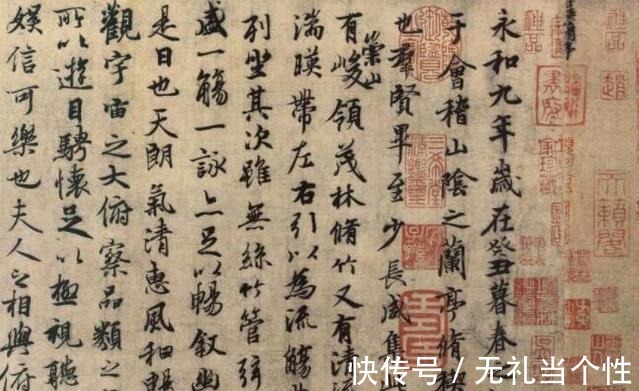 永和九年歲在癸丑暮春
于會稽山陰之蘭亭脩禊
也羣賢畢至少長咸集
崇山
有峻領茂林脩竹又有清流
湍暎帶左右引以為流觴
列坐其次雖無絲竹管弦
盛一觴一詠亦足以暢叙幽
是日也天朗氣清惠風和暢
觀宇宙之大俯察品類之
所以遊目騁懷足以極視聽
娛信可樂也夫人之相與俯
快传号 / 无礼当个性